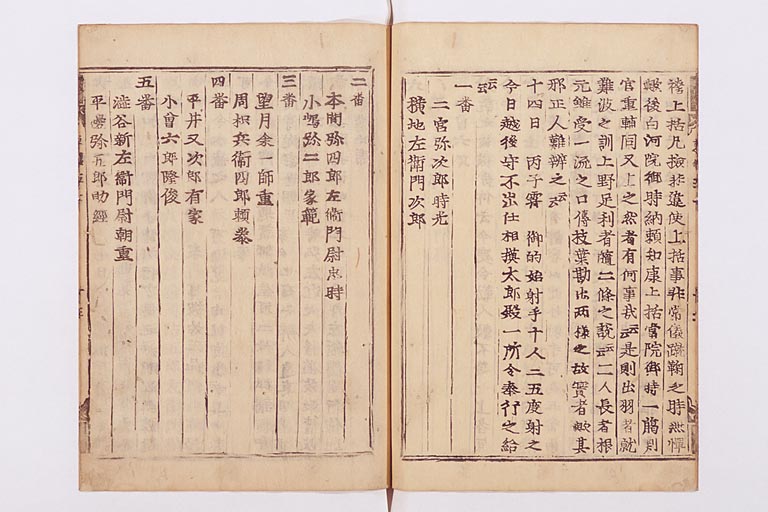 袴上括凡撿非違使上括事非常儀蹴鞠之時無憚
歟後白河院御時納賴知康上括當院御時一﨟判
官重輔同又上之然者有何事哉云云是則出羽者就
難波之訓上野足利者隨二條之說云云二人長者根
元雖受一流之口傳枝葉勘出兩樣之故實者歟其
邪正人難辨之云云
十四日 丙子霽 御的始射手十人二五度射之
今日越後守不出仕相摸太郎殿一所令奉行之給
云云
一番
二宮弥次郎時光
橫地左衞門次郎
二番
本間弥四郎左衞門尉忠時
小嶋弥二郎家範
三番
望月余一師重
周枳兵衞四郎賴泰
四番
平井又次郎有家
小曾六郎隆俊
五番
澁谷新左衞門尉朝重
平嶋弥五郎助經